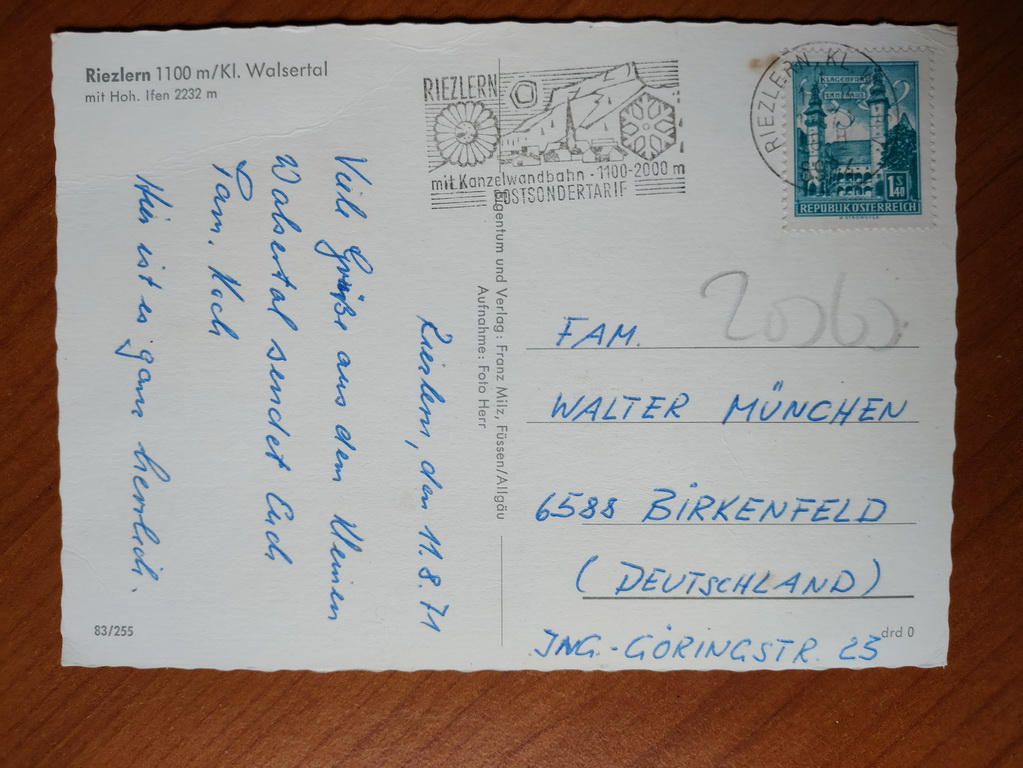 Riezlern 1100 m/Kl. Walsertal
mit Hoh. Ifen 2232 m
RIEZLERN
mit Kanzelwandbahn - 1100-2000 m
POSTSONDERTARIF
RIEZLERN, KL.
KLAGENFURT
LANDHAUS
1 S 40
REPUBLIK ÖSTERREICH
Riezlern, den 11.8.71
Viele Grüße aus dem Kleinen
Walsertal sendet Euch
Fam. Koch
Hier ist es ganz herrlich.
Eigentum und Verlag: Franz Milz, Füssen/Allgäu
Aufnahme: Foto Herr
FAM.
WALTER MÜNCHEN
6588 BIRKENFELD
(DEUTSCHLAND)
ING.-GÖRINGSTR. 23
83/255
drd 0